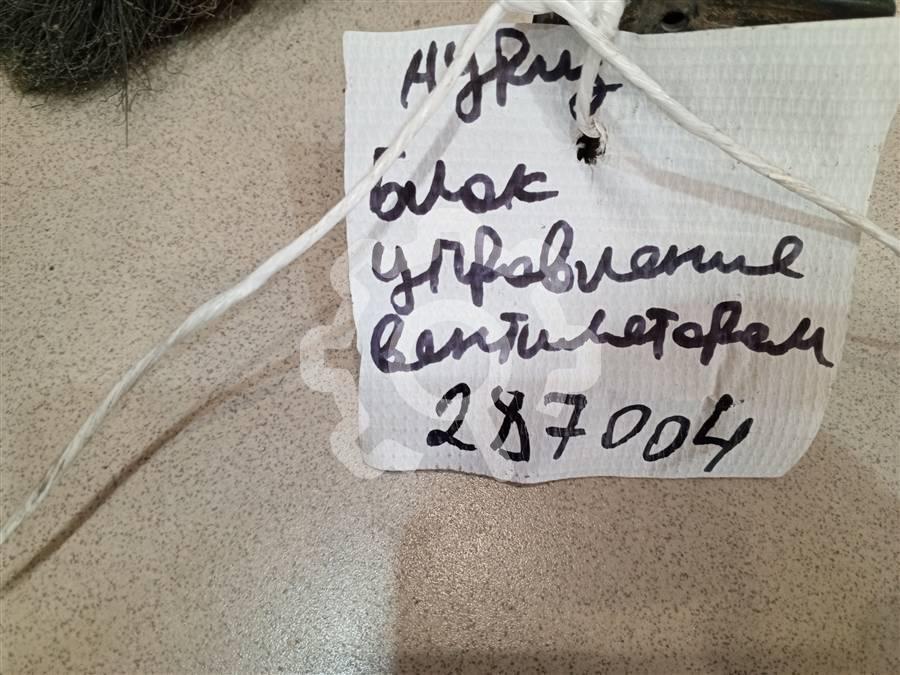 блок
управление
вентилеторам
287004